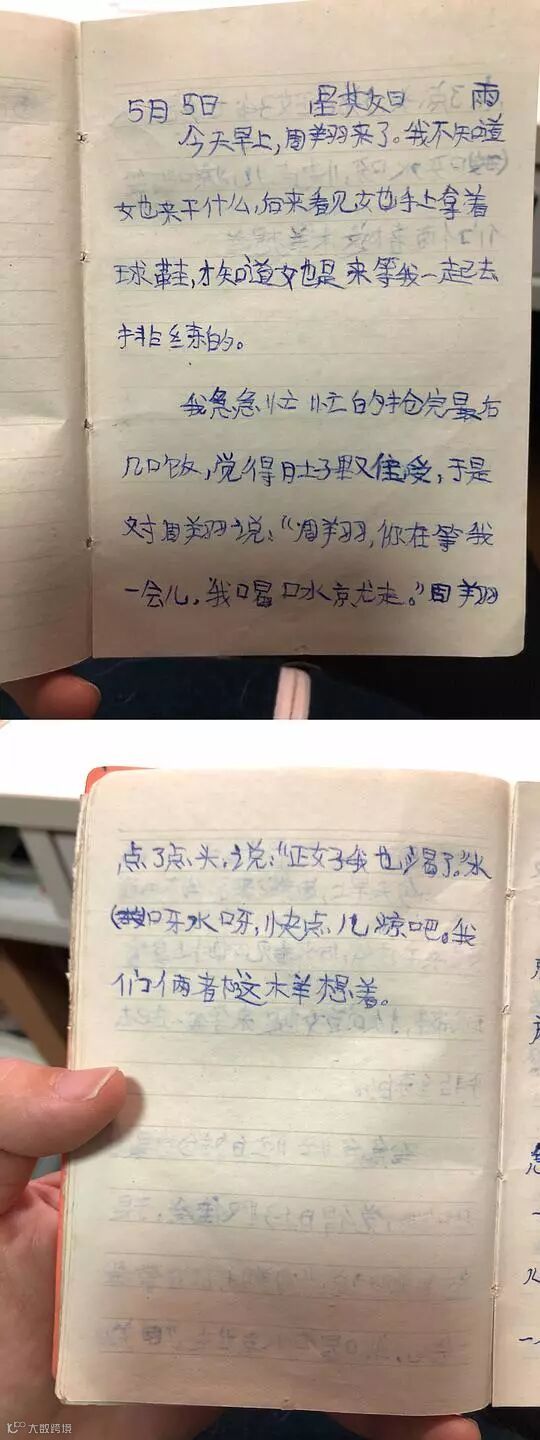 5月5日 星期日 雨
今天早上,周翔来了。我不知道
她来干什么,后来看见她手上拿着
球鞋,才知道她是来等我一起去
排练的。
我急急忙忙的抢完最后
几口饭,觉得肚子里又难受,于是
对周翔说:“周翔,你在等我
一会儿。我喝口水就走。”周翔
点了点头,说:“正好我也渴了。”水
呀水呀,快点儿凉吧。我
们俩都这样想着。
大数跨境